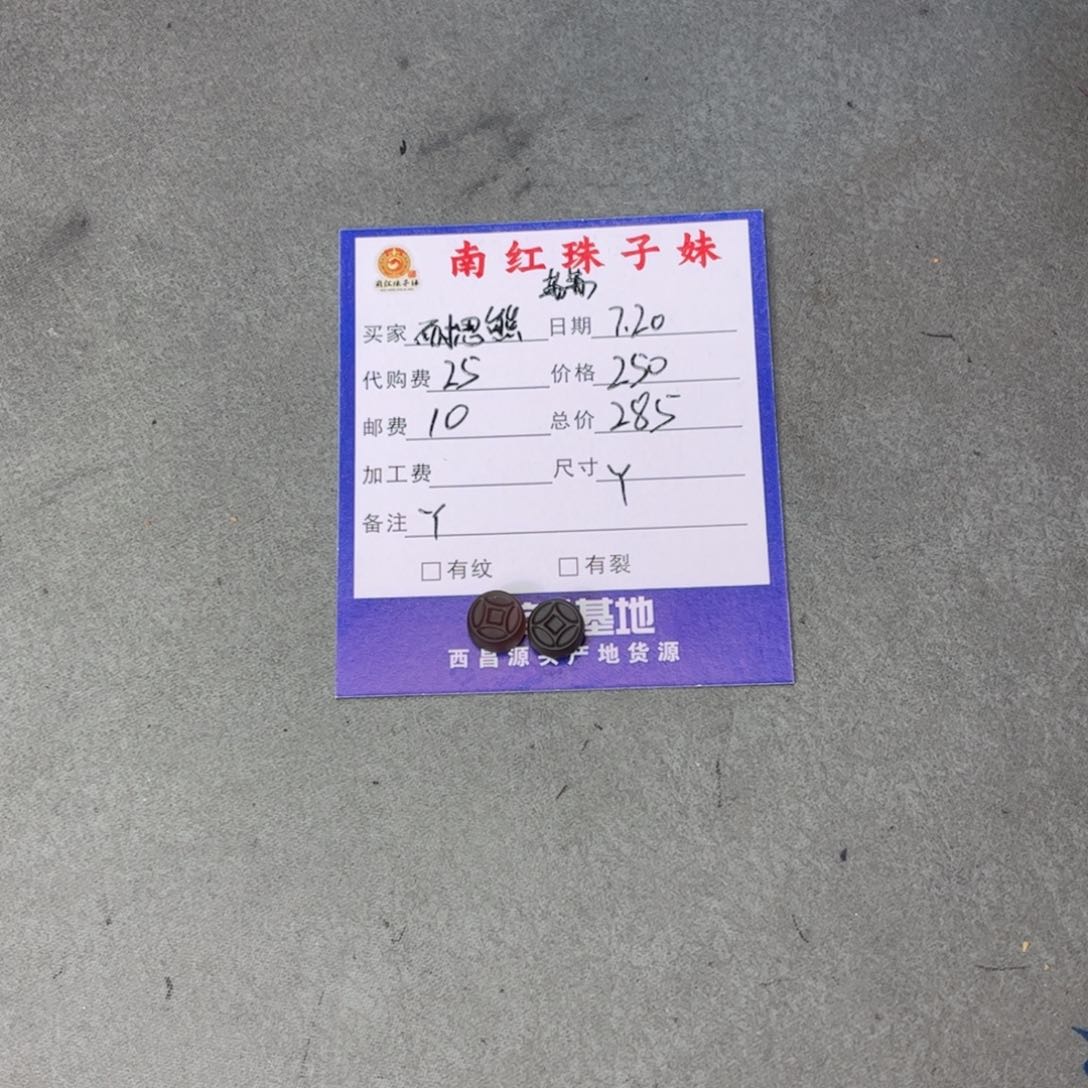 南红珠子妹
南红珠子妹
买家 耐思熊 日期 7.20
代购费 25 价格 250
邮费 10 总价 285
加工费 尺寸 丫
备注 丫
□有纹 □有裂
基地
西昌源头产地货源